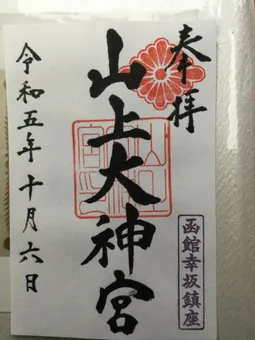 奉拝
山上大神宮
函館幸坂鎮座
令和五年十月六日